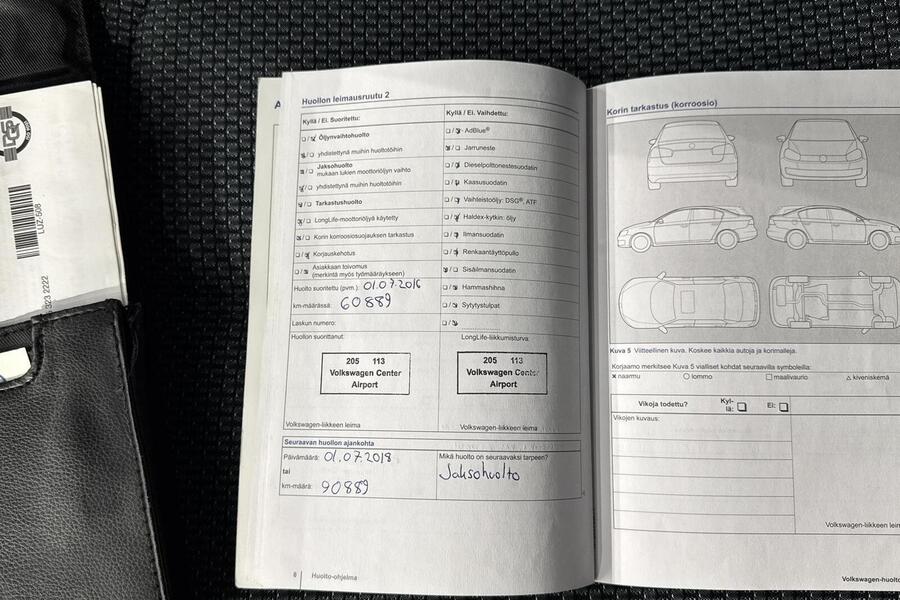 LUZ-508
323 2222
A
Huollon leimausruutu 2
Kyllä / Ei. Suoritettu:
Öljynvaihtohuolto
yhdistettynä muihin huoltotöihin
Jaksohuolto
mukaan lukien moottoriöljyn vaihto
yhdistettynä muihin huoltotöihin
Tarkastushuolto
LongLife-moottoriöljyä käytetty
Korin korroosiosuojauksen tarkastus
Korjauskehotus
Asiakkaan toivomus
(merkintä myös työmääräykseen)
Huolto suoritettu (pvm.): 01.07.2016
km-määrässä: 60889
Laskun numero:
Huollon suorittanut:
205 113
Volkswagen Center
Airport
Volkswagen-liikkeen leima
Kyllä / Ei. Vaihdettu:
AdBlue®
Jarruneste
Dieselpolttonestesuodatin
Kaasusuodatin
Vaihteistoöljy: DSG®, ATF
Haldex-kytkin: öljy
Ilmansuodatin
Renkaantäyttöpullo
Sisäilmansuodatin
Hammashihna
Sytytystulpat
LongLife-liikkumisturva:
205 113
Volkswagen Center
Airport
Volkswagen-liikkeen leima
Seuraavan huollon ajankohta
Päivämäärä: 01.07.2018
tai
km-määrä: 90889
Mikä huolto on seuraavaksi tarpeen?
Jaksohuolto
8 Huolto-ohjelma
Korin tarkastus (korroosio)
Kuva 5 Viitteellinen kuva. Koskee kaikkia autoja ja korimalleja.
Korjaamo merkitsee Kuva 5 vialliset kohdat seuraavilla symboleilla:
× naarmu ○ lommo □ maalivaurio △ kiveniskemä
Vikoja todettu? Kyl-
lä: □ Ei: □
Vikojen kuvaus:
Volkswagen-liikkeen leim
Volkswagen-huolto